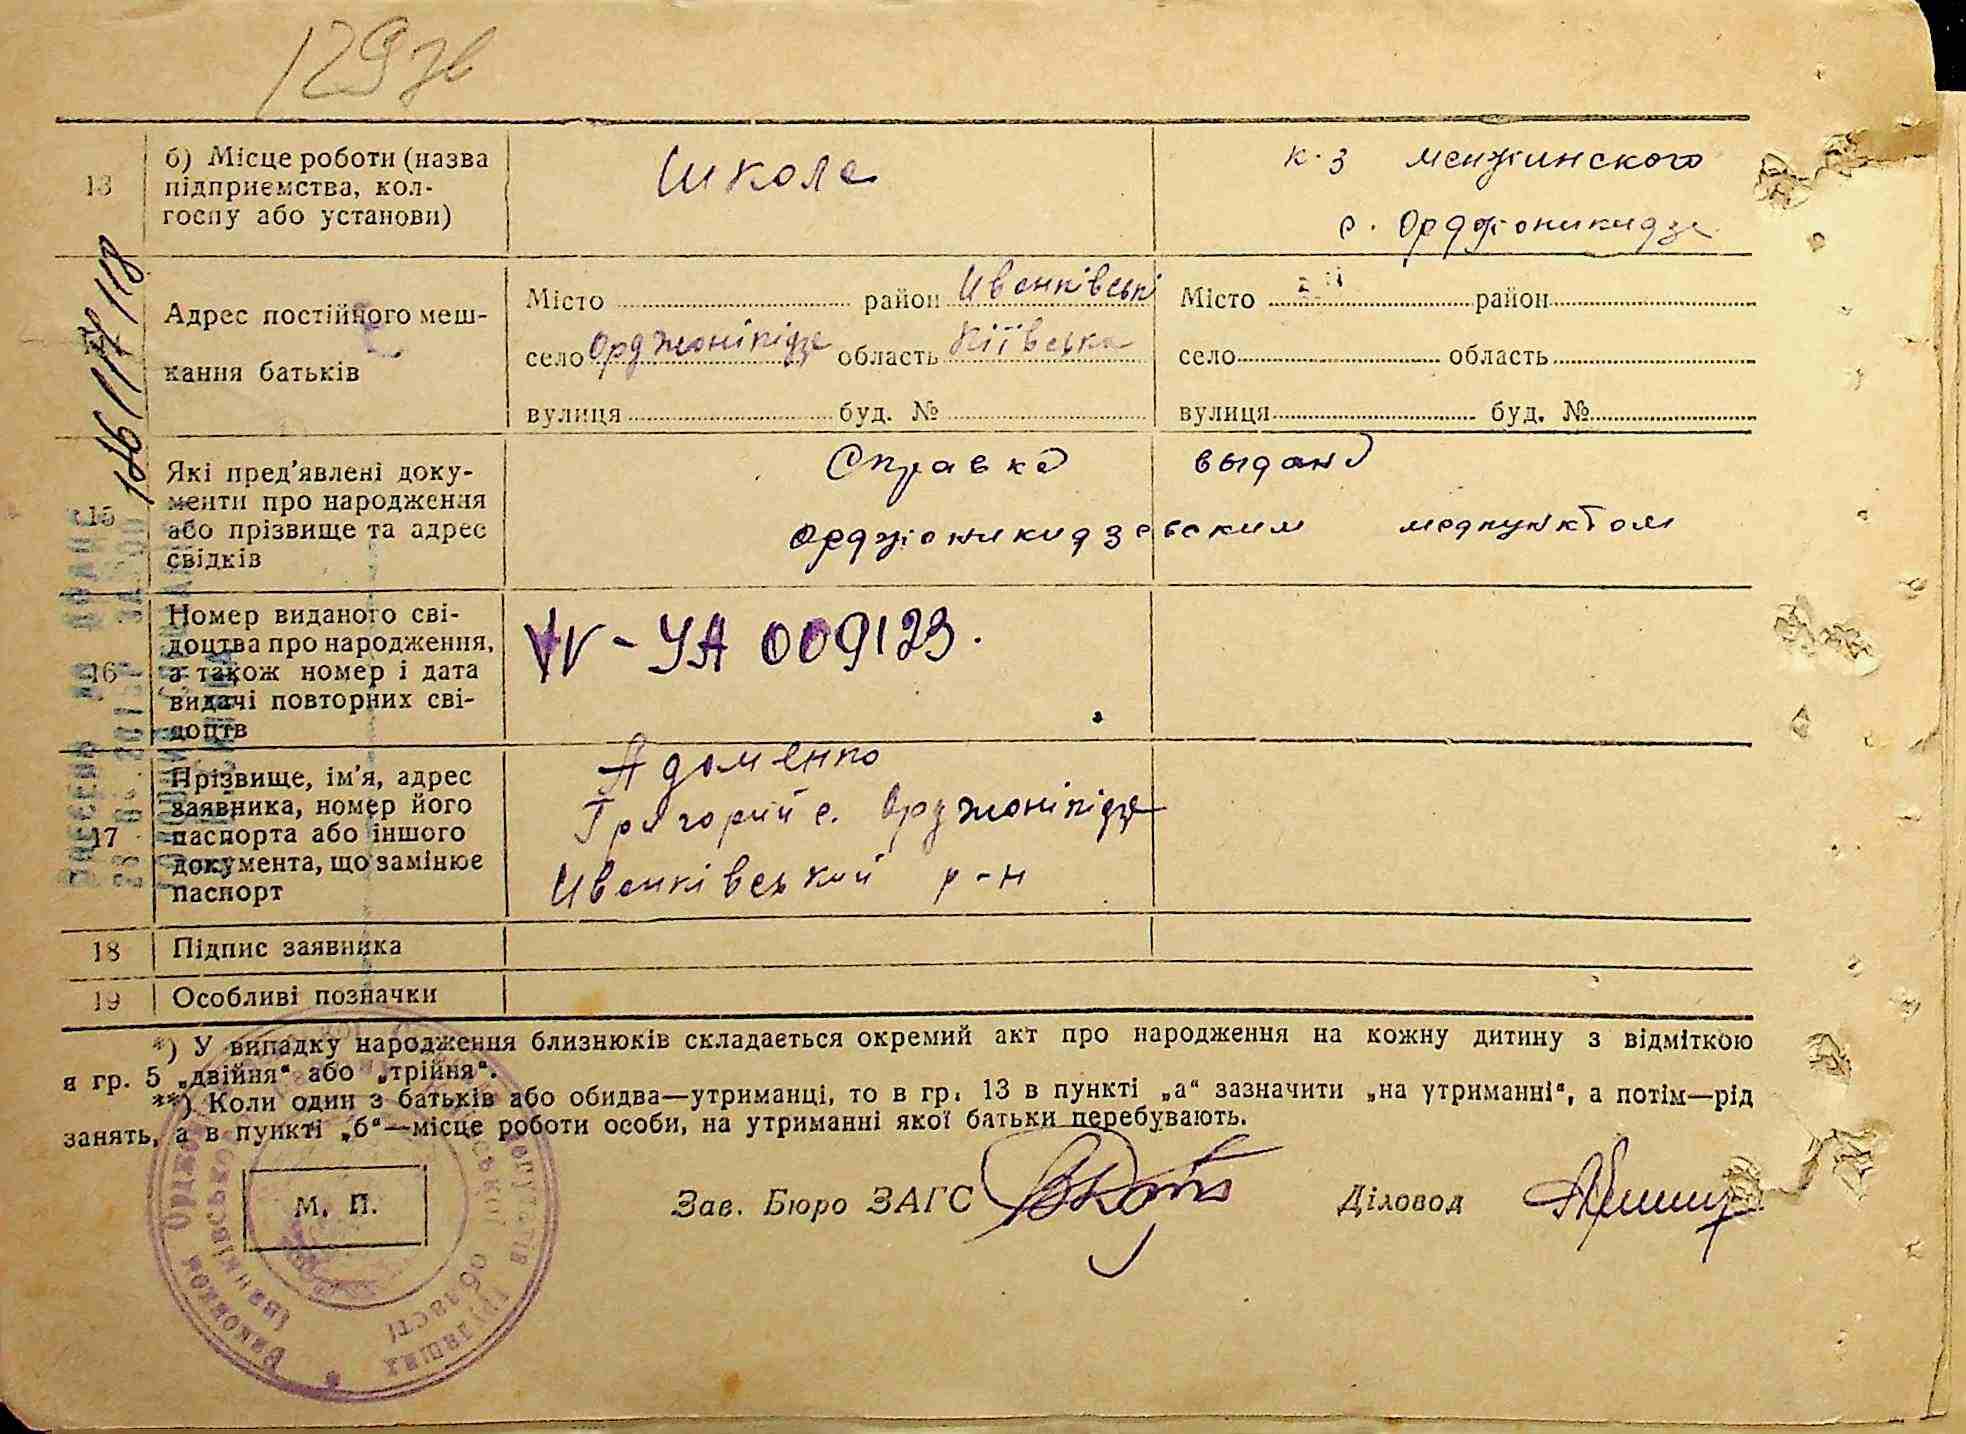 129 зв
13 б) Місце роботи (назва
підприємства, кол-
госпу або установи)
Школа
к-з менжинского
с. Орджоникидзе
Адрес постійного меш-
кання батьків
Місто район Иванківськ
село Орджонікідзе область Київська
вулиця буд. №
Місто район
село область
вулиця буд. №
15 Які пред'явлені доку-
менти про народження
або прізвище та адрес
свідків
Справка выдана
Орджоникидзевским медпунктом
16 Номер виданого сві-
доцтва про народження,
а також номер і дата
видачі повторних сві-
доцтв
IV-УА 009123.
17 Прізвище, ім'я, адрес
заявника, номер його
паспорта або іншого
документа, що замінює
паспорт
Адаменко
Григорий с. Орджонікідзе
Иванківський р-н
18 Підпис заявника
19 Особливі позначки
*) У випадку народження близнюків складається окремий акт про народження на кожну дитину з відміткою
я гр. 5 „двійня“ або „трійня“.
**) Коли один з батьків або обидва—утриманці, то в гр. 13 в пункті „а“ зазначити „на утриманні“, а потім—рід
занять, а в пункті „б“—місце роботи особи, на утриманні якої батьки перебувають.
М. П.
Зав. Бюро ЗАГС
Діловод
депутатів трудящих
області